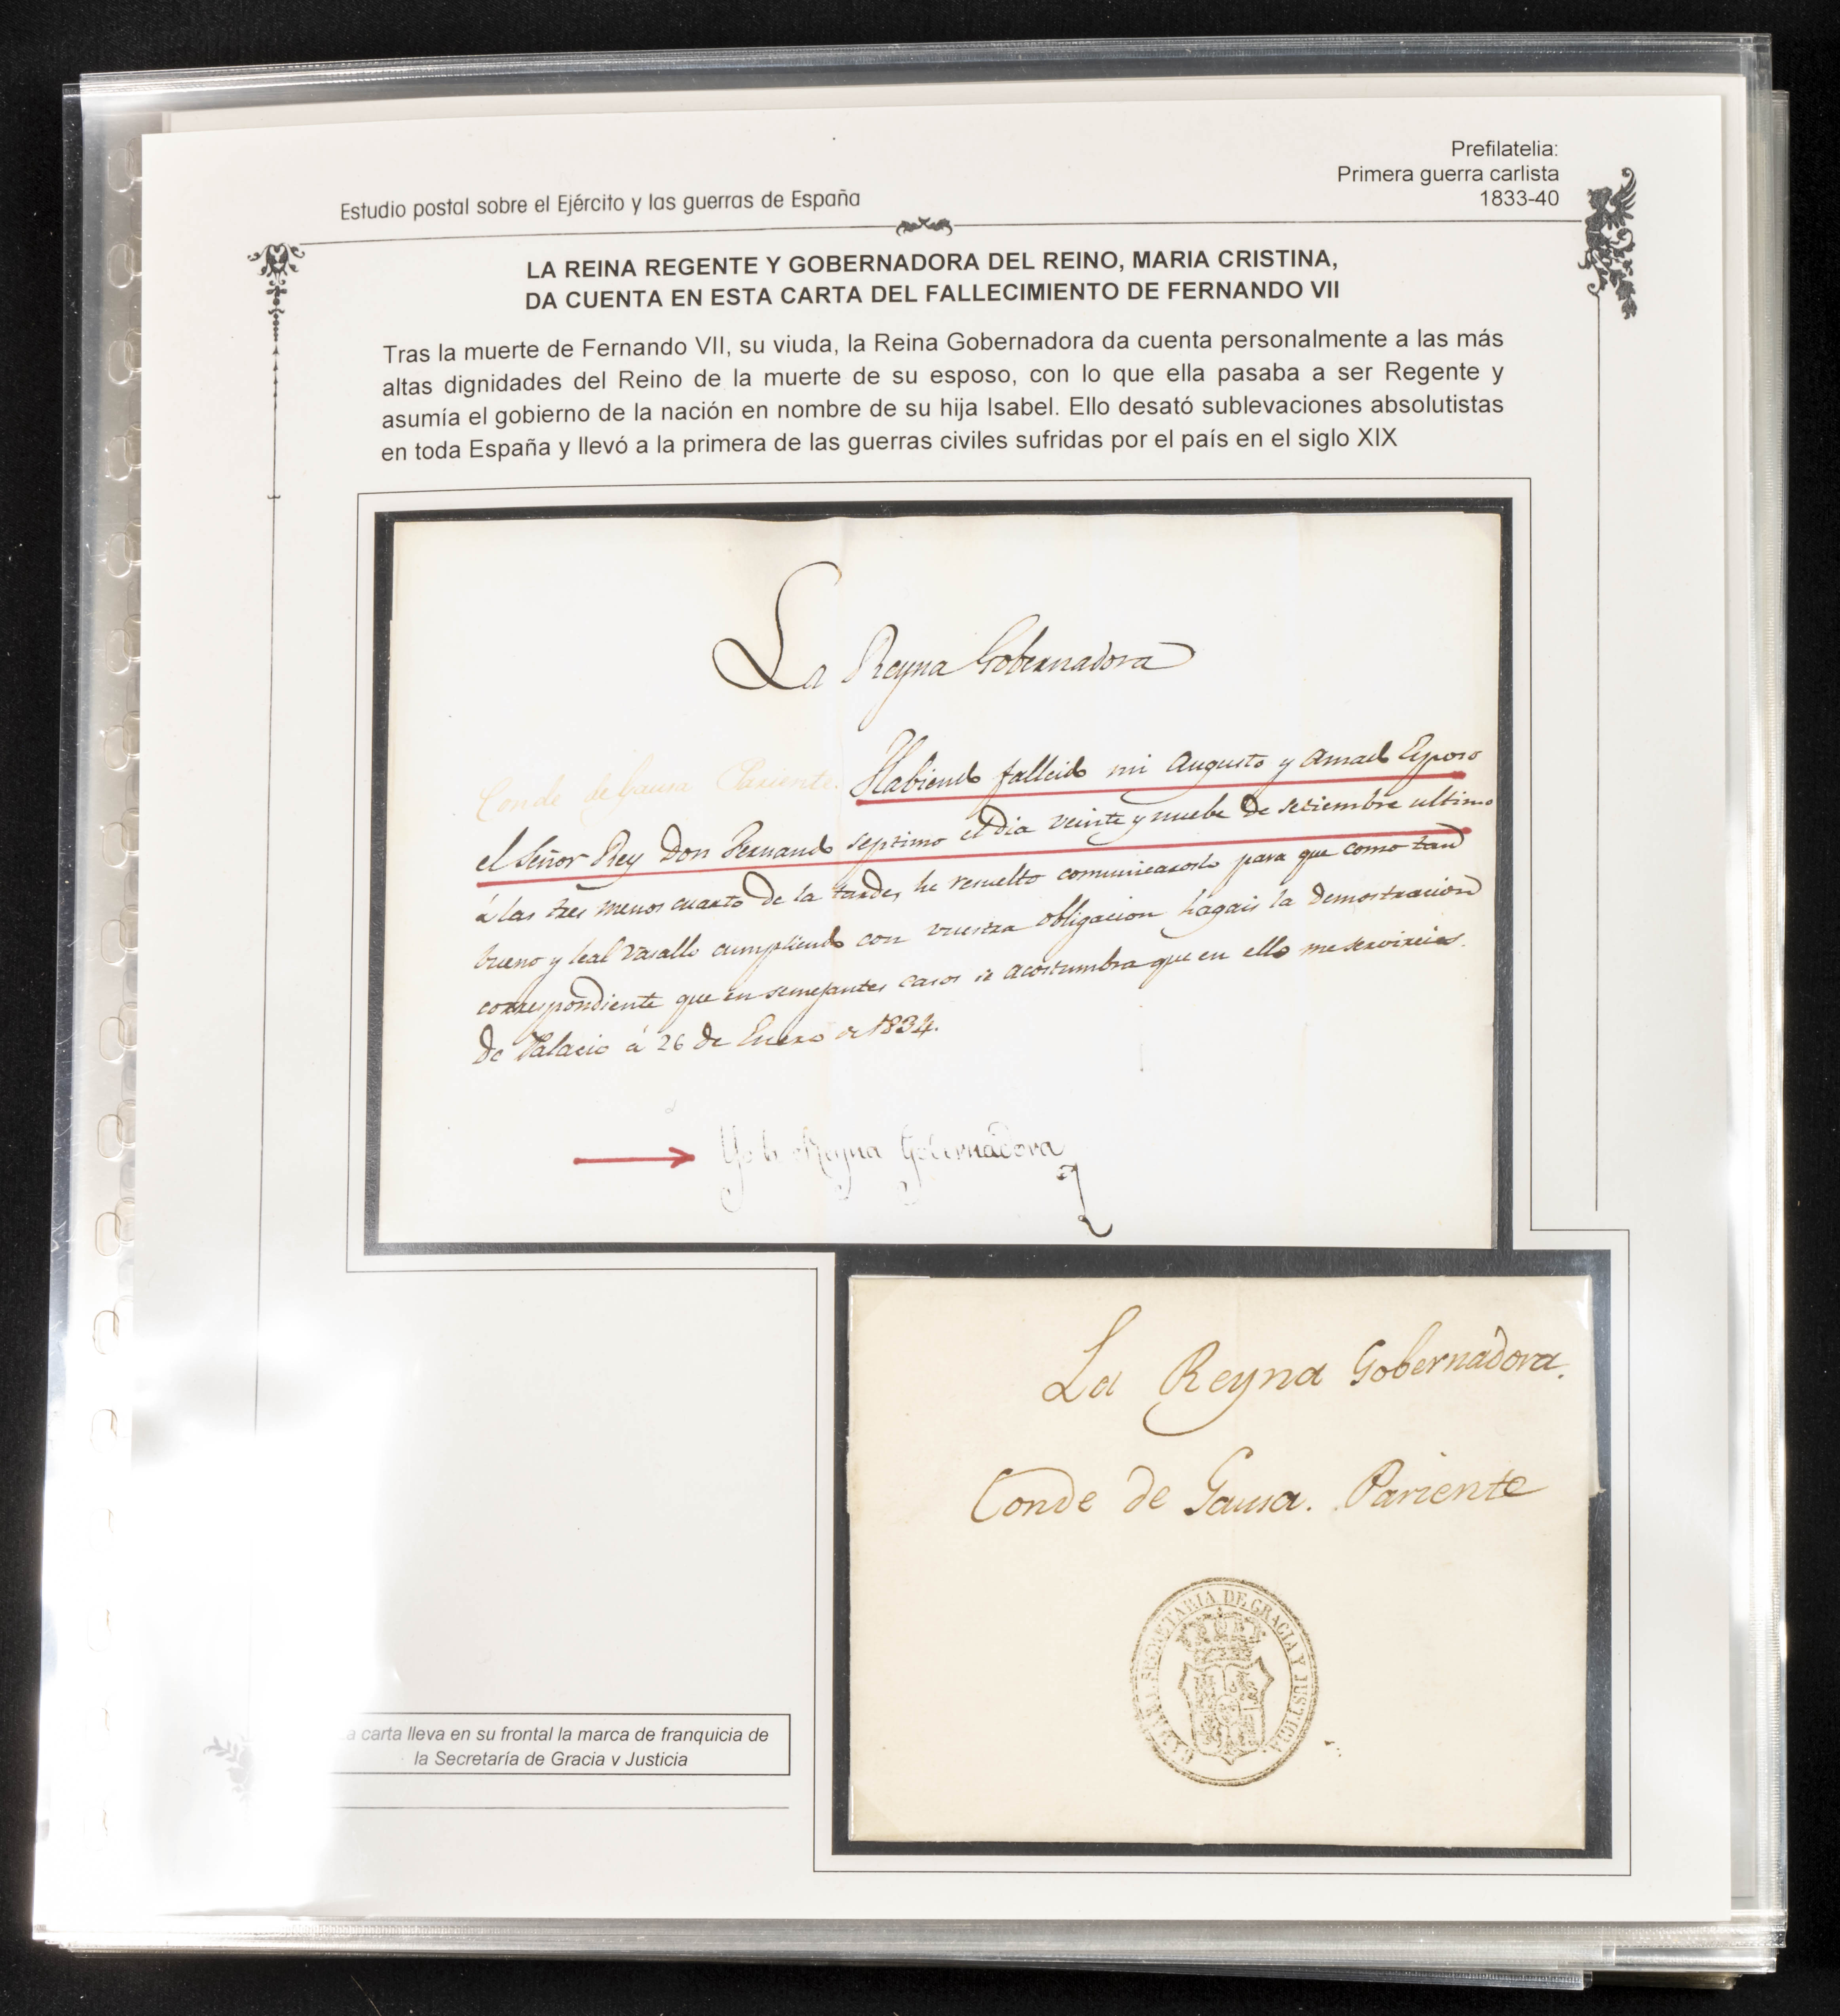 Prefilatelia:
Primera guerra carlista
1833-40
Estudio postal sobre el Ejército y las guerras de España
LA REINA REGENTE Y GOBERNADORA DEL REINO, MARIA CRISTINA,
DA CUENTA EN ESTA CARTA DEL FALLECIMIENTO DE FERNANDO VII
Tras la muerte de Fernando VII, su viuda, la Reina Gobernadora da cuenta personalmente a las más
altas dignidades del Reino de la muerte de su esposo, con lo que ella pasaba a ser Regente y
asumía el gobierno de la nación en nombre de su hija Isabel. Ello desató sublevaciones absolutistas
en toda España y llevó a la primera de las guerras civiles sufridas por el país en el siglo XIX
La Reyna Gobernadora
Conde de Gausa Pariente. Habiendo fallecido mi Augusto y Amado Esposo
el Señor Rey Don Fernando septimo el dia veinte y nuebe de setiembre ultimo
á las tres menos cuarto de la tarde, he resuelto comunicaroslo para que como tan
bueno y leal vasallo cumpliendo con vuestra obligacion hagais la demostracion
correspondiente que en semejantes casos se acostumbra que en ello me servireis.
De Palacio á 26 de Enero de 1834.
Yo la Reyna Gobernadora
La Reyna Gobernadora.
Conde de Gausa. Pariente
SECRETARIA DE GRACIA Y JUSTICIA
a carta lleva en su frontal la marca de franquicia de
la Secretaría de Gracia y Justicia